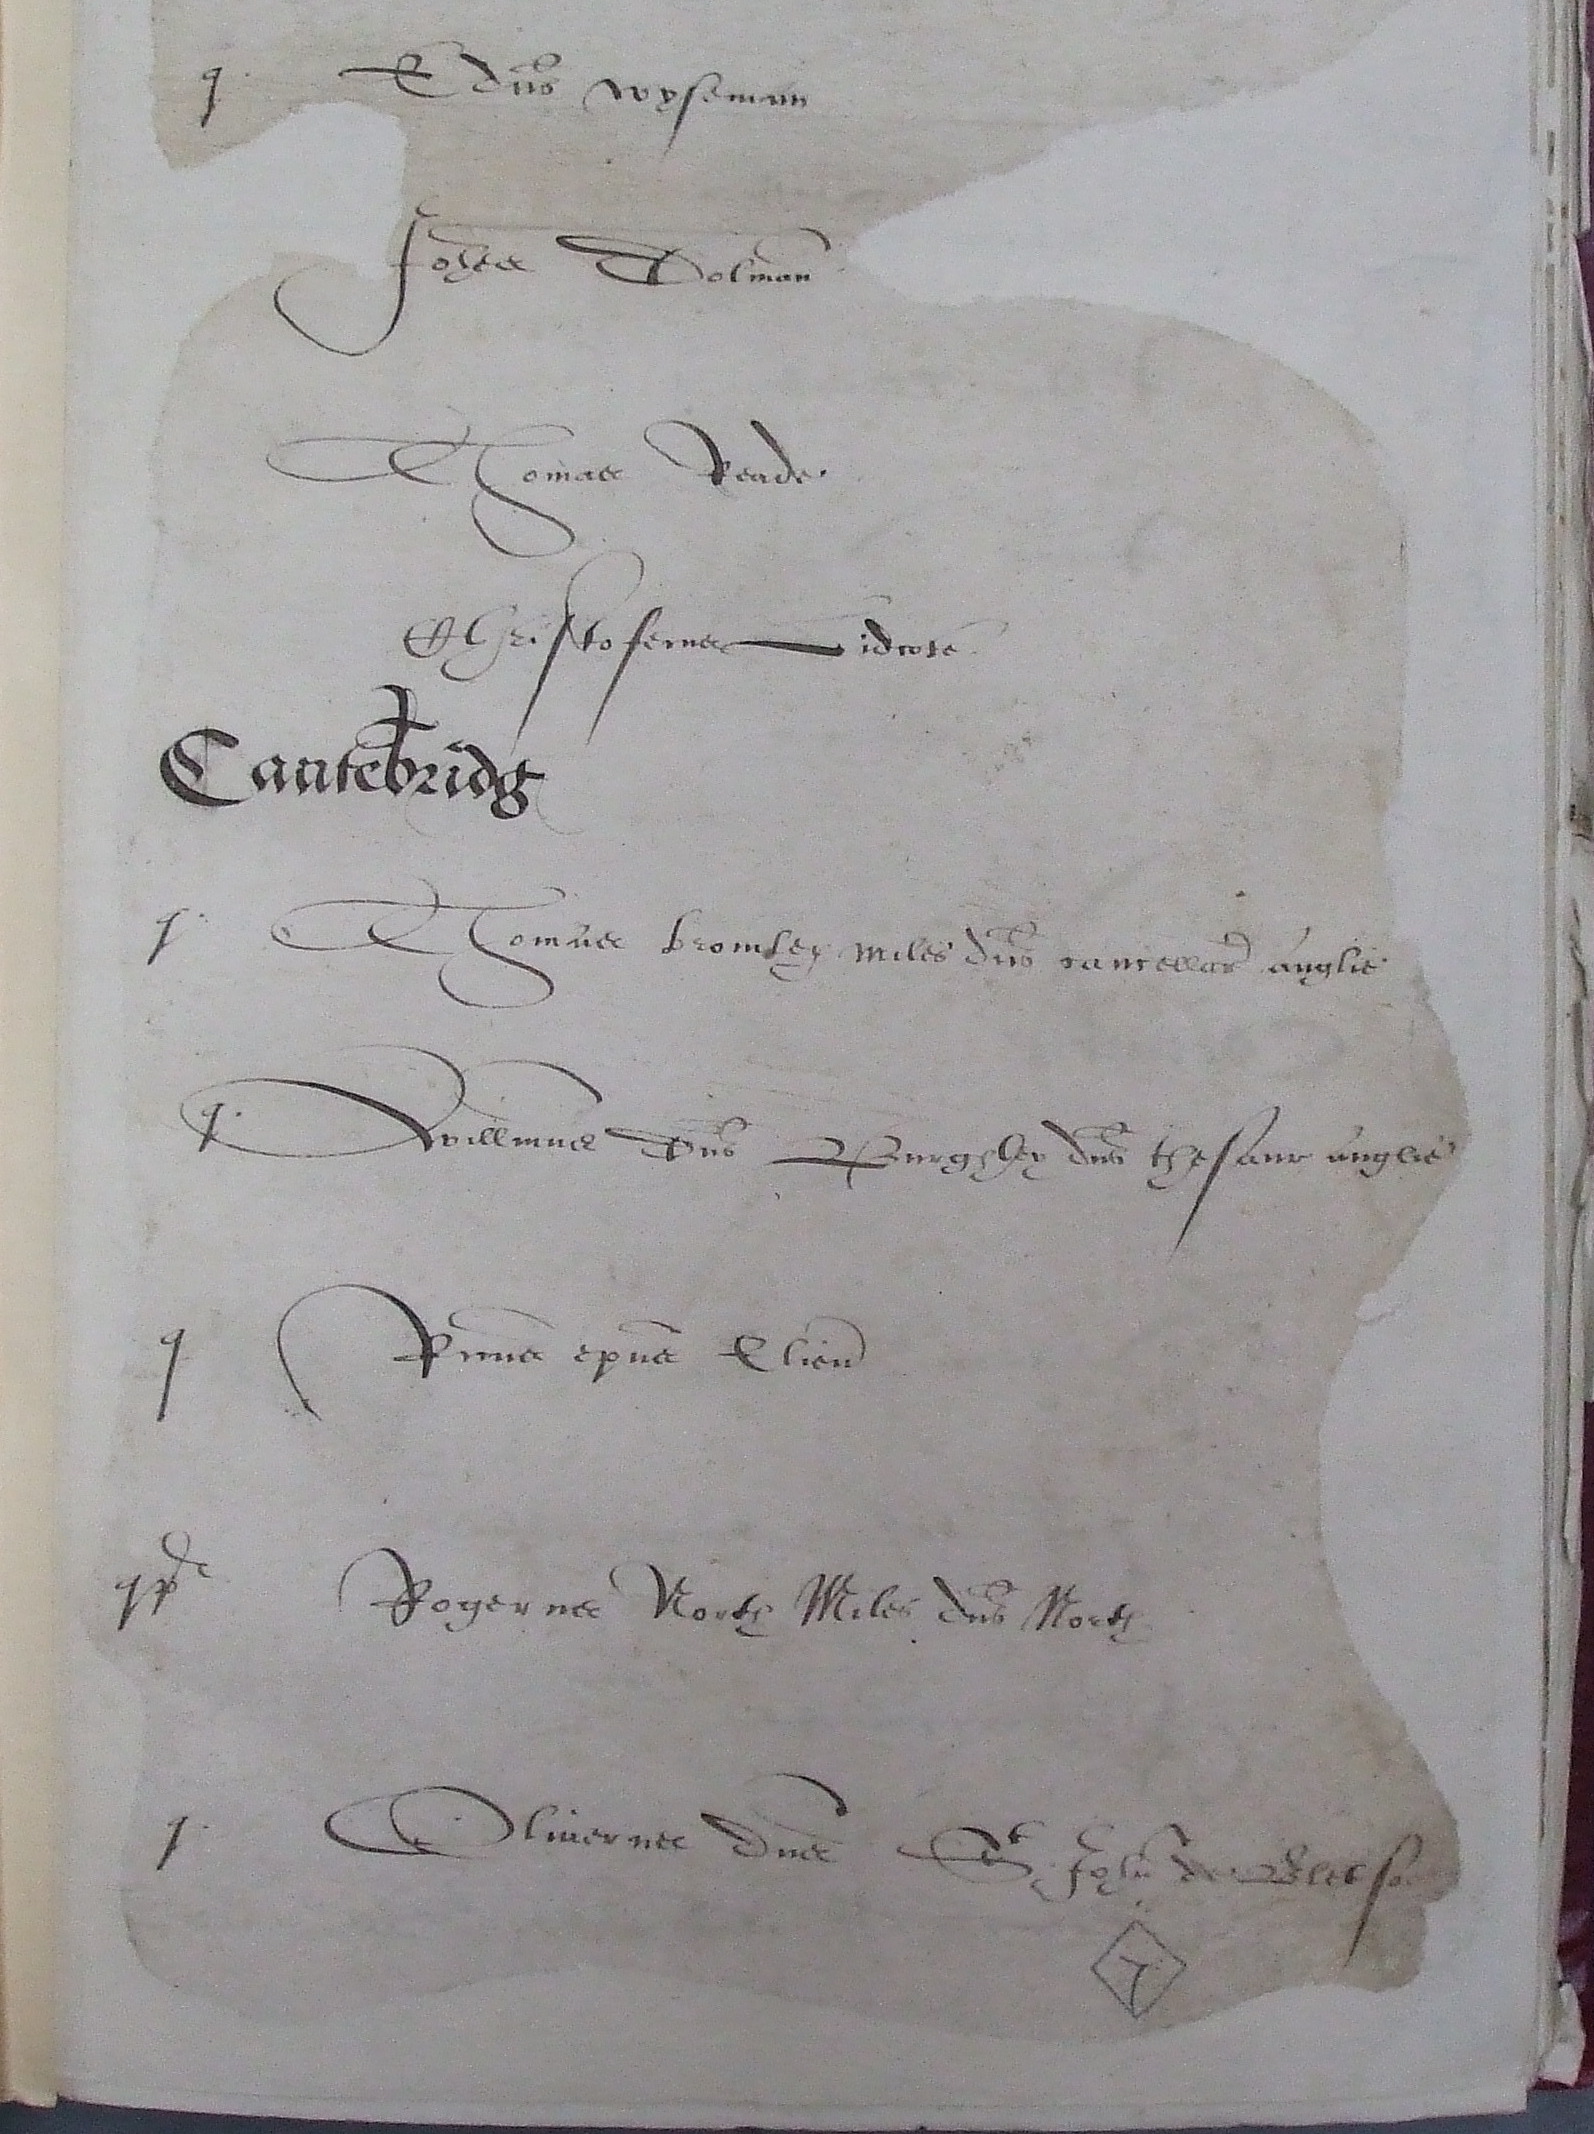 q Edus wyseman
Johes Dolman
Thomas Reade
Christoferus Lidcote
Cantebridg
q Thomas bromley miles dus cancellar anglie
q Willmus Dus Burghley dus thesaur anglie
q Ricus epus Elien
q Rogerus North Miles dus North
q Oliuerus dus St John de Bletso
7